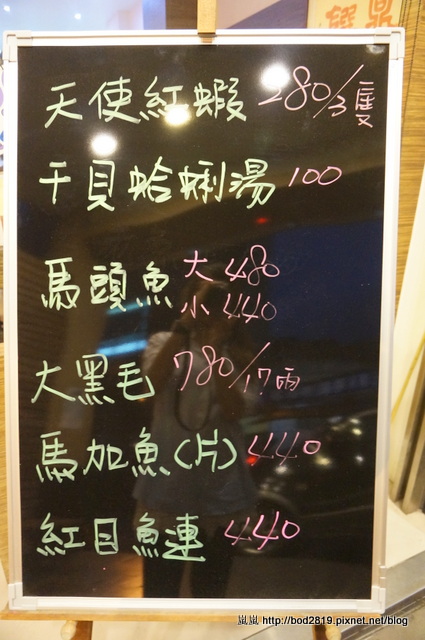 鼎饌
天使紅蝦 280/3隻
干貝蛤蜊湯 100
馬頭魚 大 480
小 440
大黑毛 780/17兩
馬加魚(片) 440
紅目魚連 440
嵐嵐 http://bod2819.pixnet.net/blog